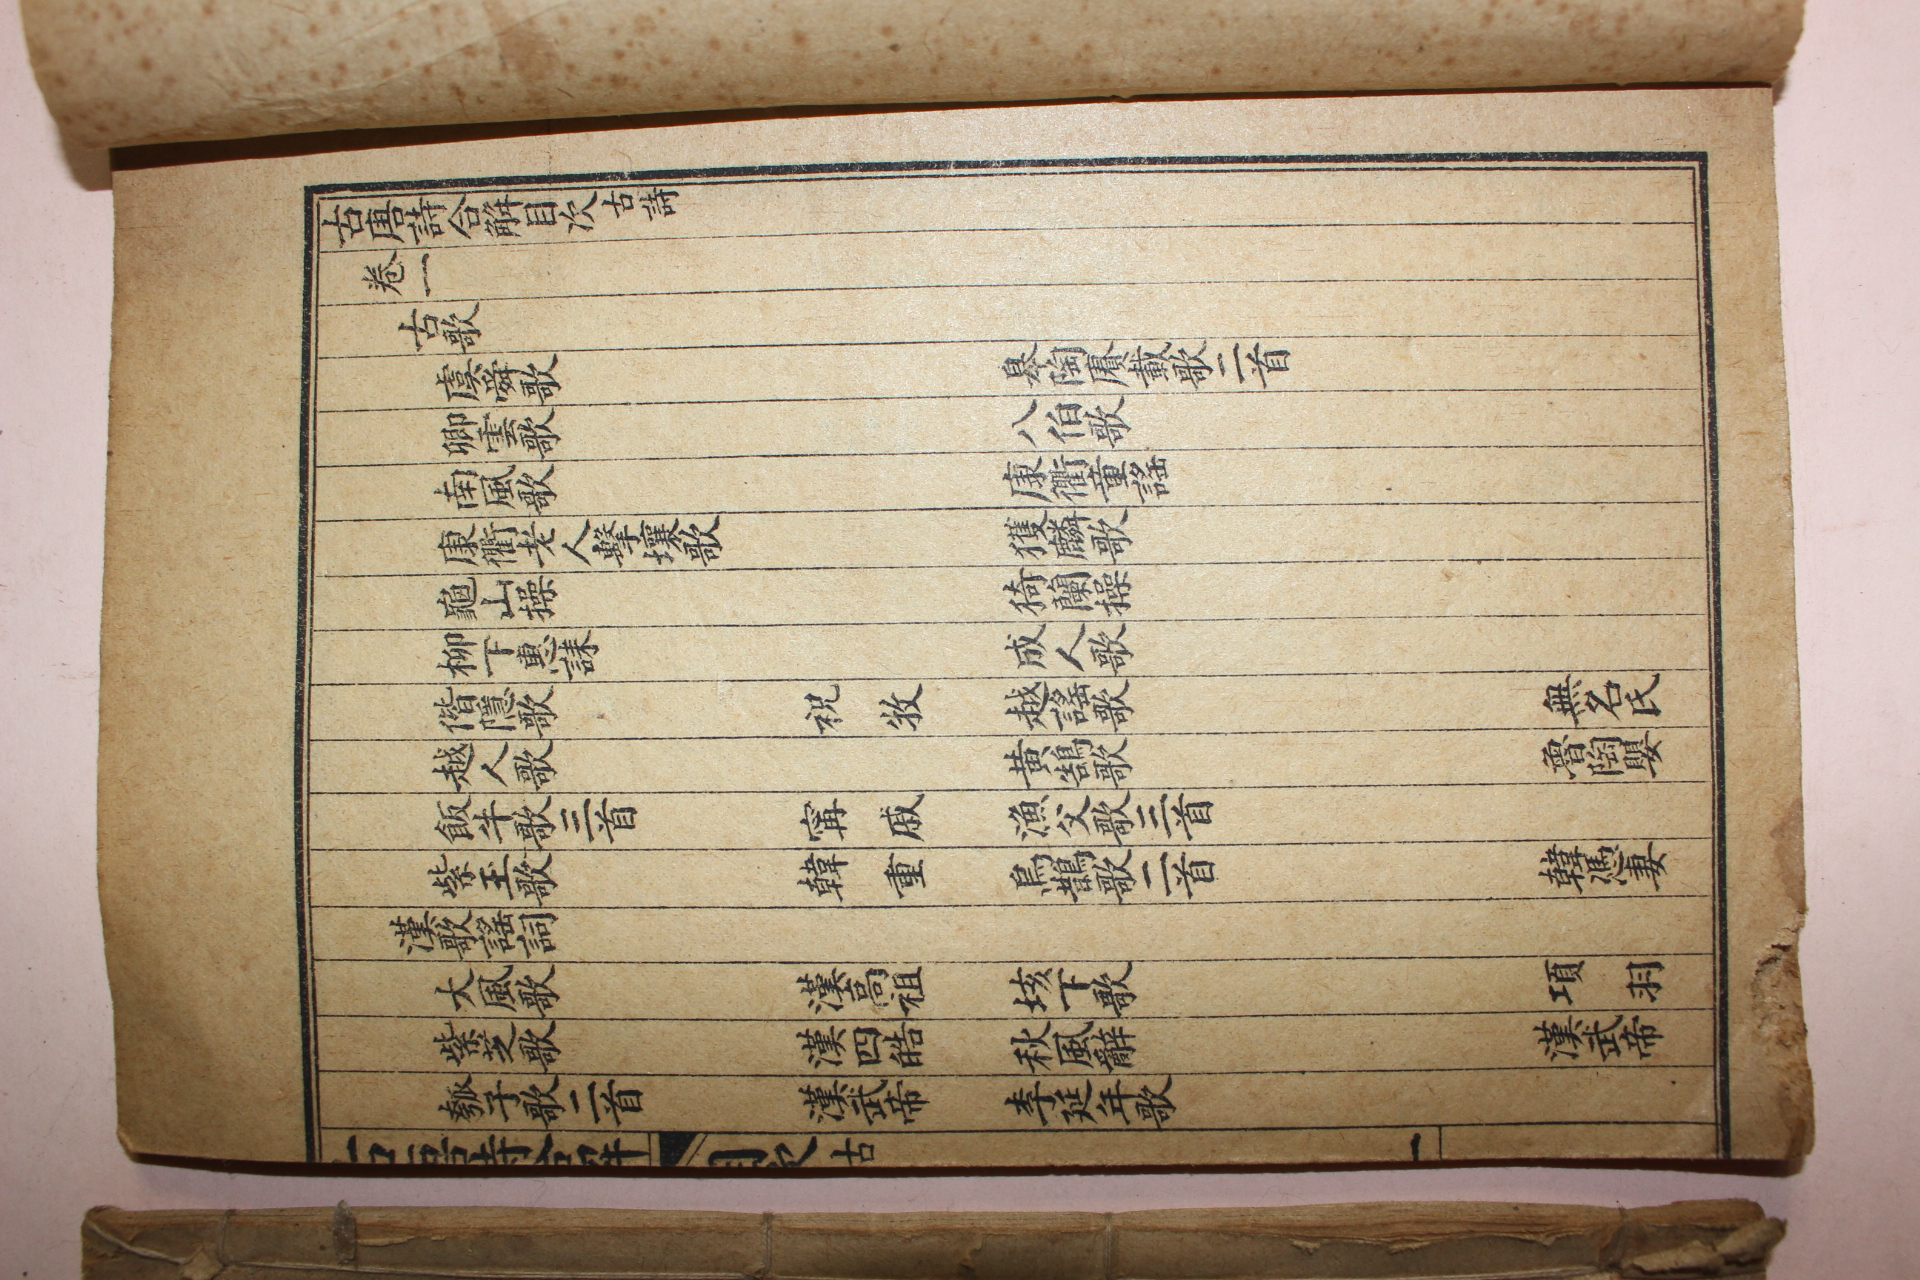 古唐詩合解目次 古詩
卷一
古歌
虞舜歌 皋陶賡載歌二首
卿雲歌 八伯歌
南風歌 康衢童謠
康衢老人擊壤歌 獲麟歌
龜山操 猗蘭操
柳下惠誄 成人歌
偕隱歌 祝牧 越謠歌 無名氏
越人歌 黃鵠歌 魯陶嬰
飯牛歌三首 甯戚 漁父歌三首
紫玉歌 韓重 烏鵲歌二首 韓馮妻
漢歌謠詞
大風歌 漢高祖 垓下歌 項羽
紫芝歌 漢四皓 秋風辭 漢武帝
瓠子歌二首 漢武帝 李延年歌
古唐詩合解 目次 古 一